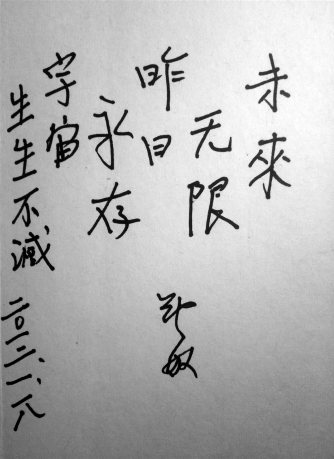 未來
无限
昨日
永存
宇宙
生生不滅
二〇一二、一、八